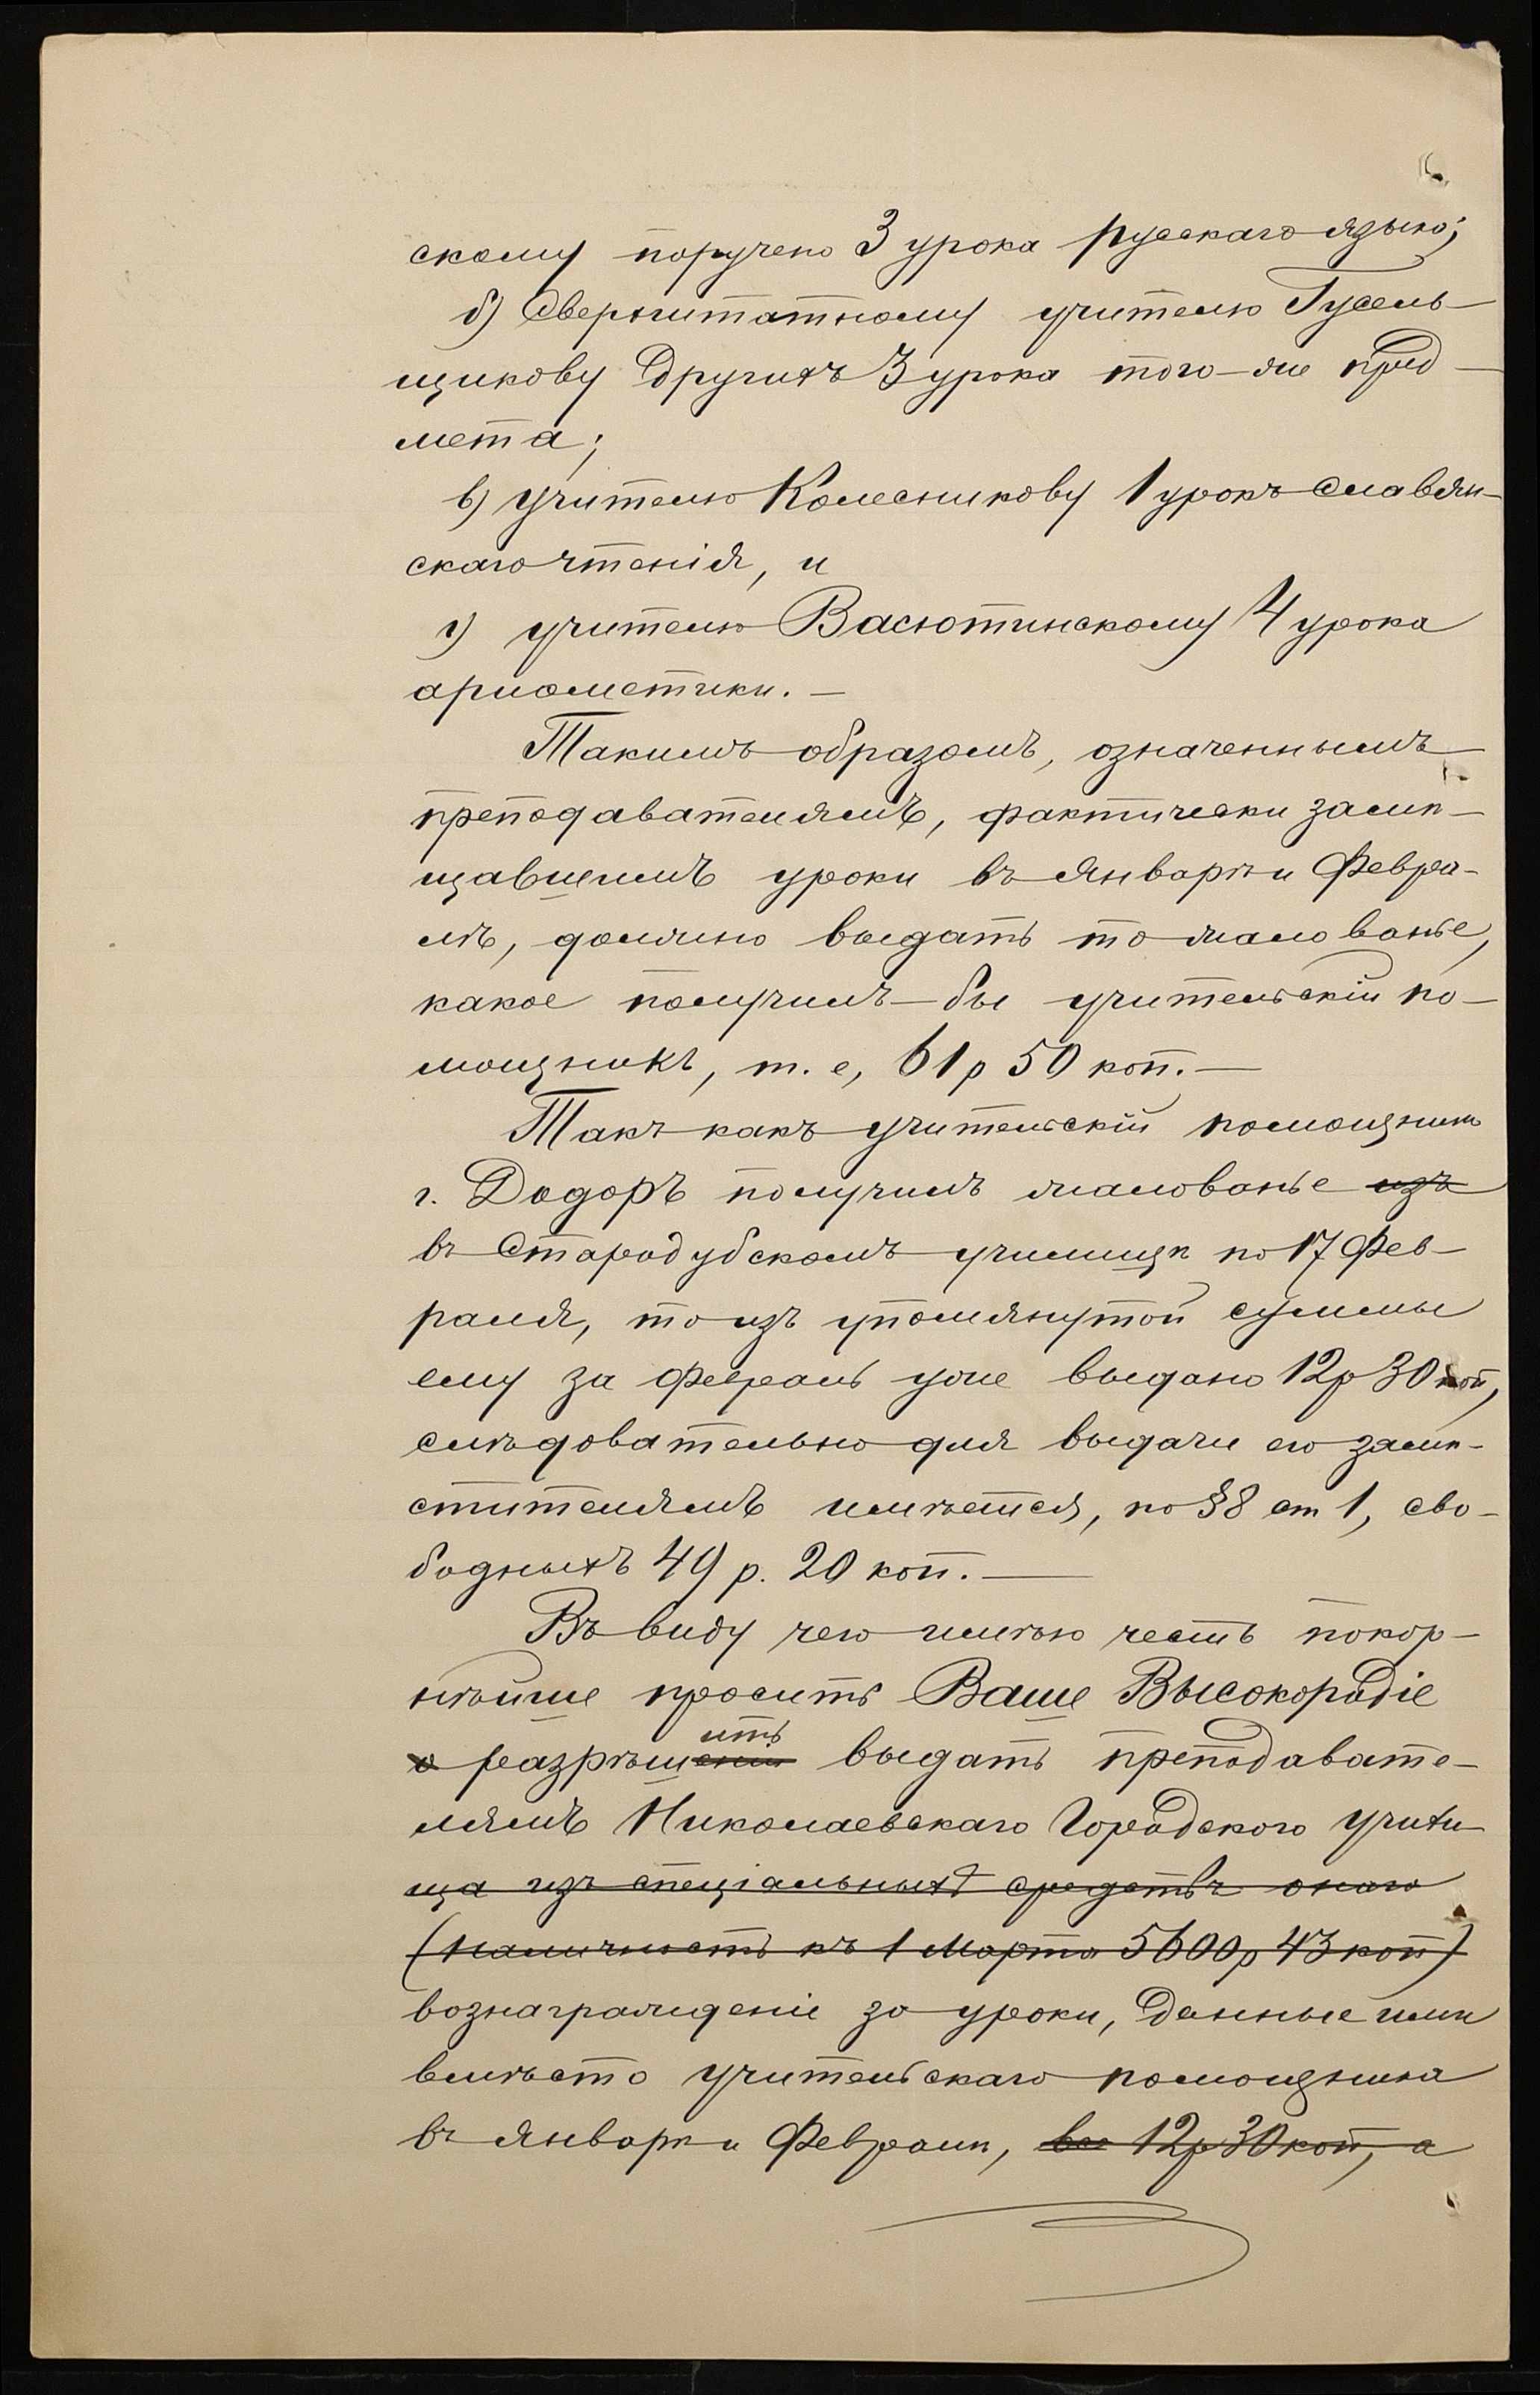 скому поручено 3 урока русскаго языка;
б) Сверхштатному учителю Гусель-
щикову другихъ 3 урока того-же пред-
мета;
в) учителю Колесникову 1 урокъ славян-
скаго чтенія, и
г) учителю Васютинскому 4 урока
ариѳметики. —
Такимъ образомъ, означеннымъ
преподавателямъ, фактически замѣ-
щавшимъ уроки въ Январѣ и Февра-
лѣ, должно выдать то жалованье,
какое получилъ-бы учительскій по-
мощникъ, т. е, 61 р 50 коп. —
Такъ какъ учительскій помощникъ
г. Додоръ получилъ жалованье изъ
въ Стародубскомъ училищѣ по 17 Фев-
раля, то изъ упомянутой суммы
ему за Февраль уже выдано 12 р 30 коп,
слѣдовательно для выдачи его замѣ-
стителямъ имѣется, по §8 ст 1, сво-
бодныхъ 49 р. 20 коп. —
Въ виду чего имѣю честь покор-
нѣйше просить Ваше Высокородіе
о разрѣшеніи ить выдать преподавате-
лямъ Николаевскаго Городского учили-
ща изъ спеціальныхъ средствъ онаго
(наличность къ 1 Марта 5600 р 43 коп)
вознагражденіе за уроки, данные ими
вмѣсто учительскаго помощника
въ Январѣ и Февралѣ, все 12 р 30 коп, а